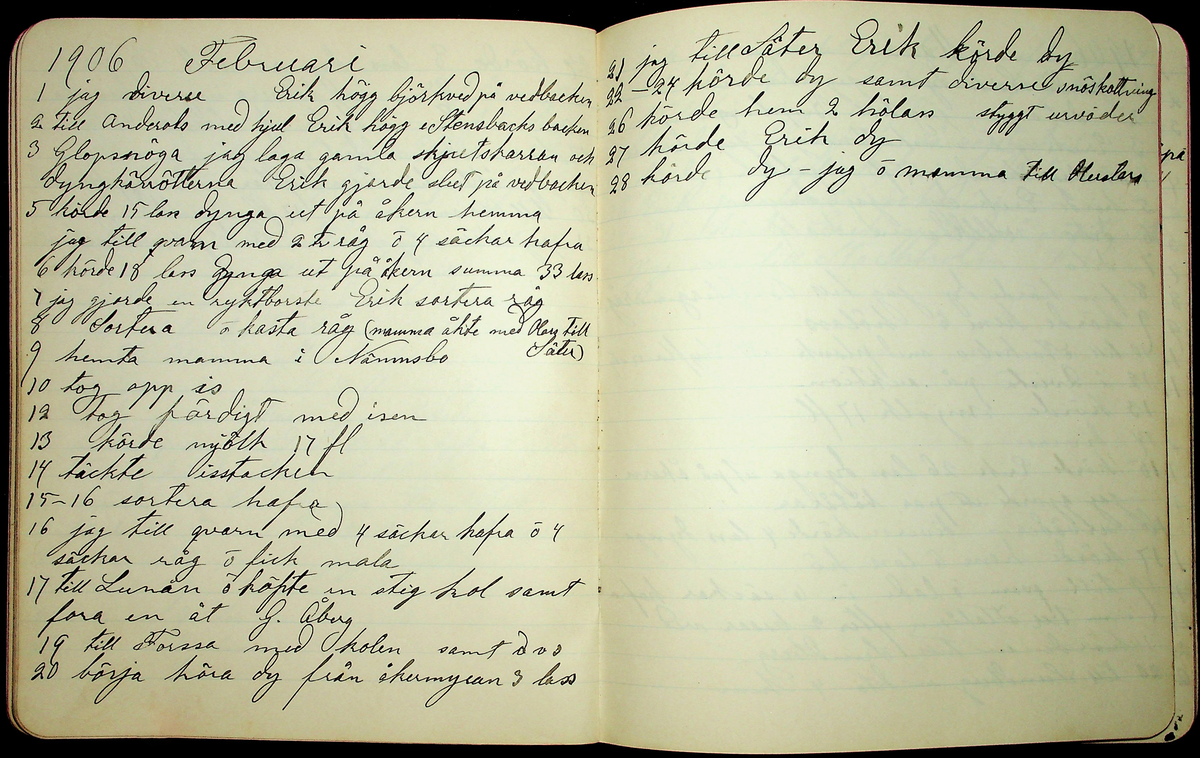 1906 Februari
1 jag diverse Erik högg björkved på vedbacken
2 till Anderols med hjul Erik högg i Stensbacks backen
3 Glopsnöga jag laga gamla skjutskärran och
dyngkärrötterna Erik gjorde slut på vedbacken
5 körde 15 lass dynga ut på åkern hemma
jag till qvarn med 2 t råg ö 4 säckar hafra
6 körde 18 lass dynga ut på åkern summa 33 lass
7 jag gjorde en ryktborste Erik sortera råg
8 Sortera o kasta råg (mamma åkte med Olars till
Säter)
9 hemta mamma i Nämmsbo
10 tog opp is
12 tog färdigt med isen
13 körde mjölk 17 fl
14 täckte isstacken
15-16 sortera hafra
16 jag till qvarn med 4 säckar hafra ö 4
säckar råg ö fick mala
17 till Lunån ö köpte en stig kol samt
fora en åt G. Åberg
19 till Forssa med kolen samt
20 börja köra dy från åkermyran 3 lass
21 jag till Säter Erik körde dy
22-24 körde dy samt diverse snöskottning
26 körde hem 2 hölass styggt urväder
27 körde Erik dy
28 körde dy - jag ö mamma till